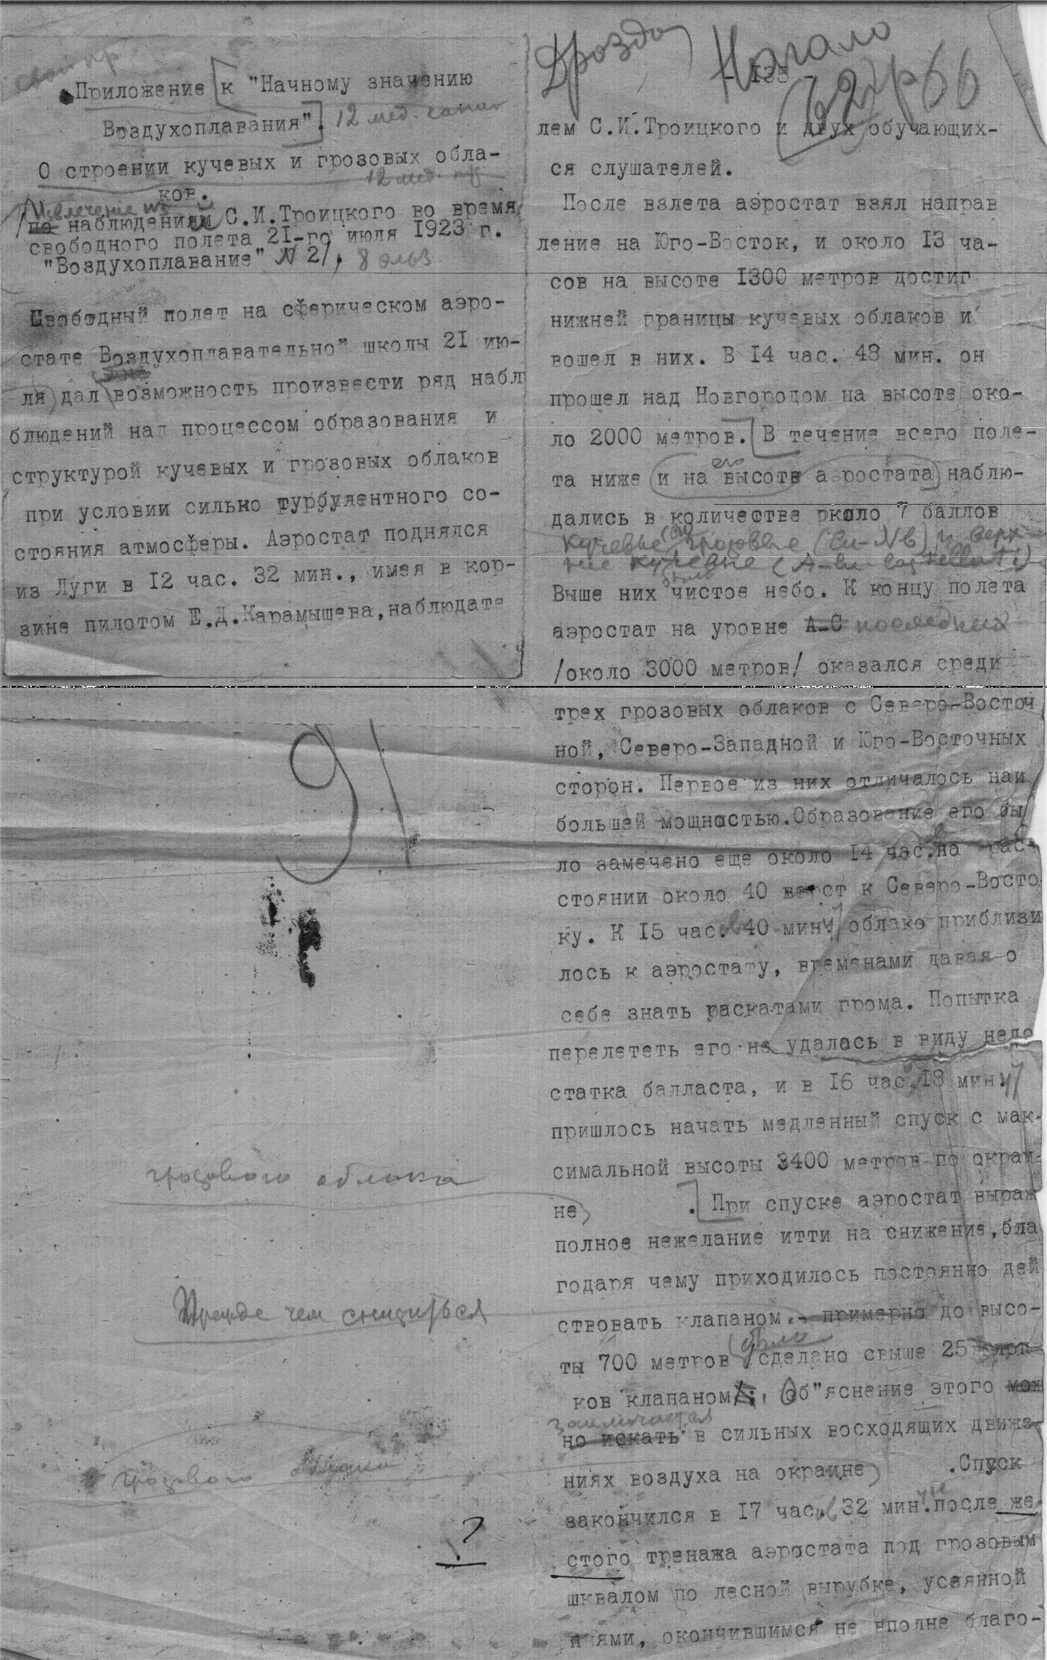 Приложение к "Начному значению
Воздухоплавания".
12 мед.
О строении кучевых и грозовых обла-
12 мед.
ков.
Извлечение из
по наблюдениям С.И.Троицкого во время
свободного полета 21-го июля 1923 г.
"Воздухоплавание" № 2/,
Свободный полет на сферическом аэро-
стате Воздухоплавательной школы 21 ию-
ля дал возможность произвести ряд набл
блюдений над процессом образования и
структурой кучевых и грозовых облаков
при условии сильно турбулентного со-
стояния атмосферы. Аэростат поднялся
из Луги в 12 час. 32 мин., имея в кор-
зине пилотом Е.Д.Карамышева,наблюдате
91
грозового облака
Прежде чем снизиться
грозового облака
?
Дрозду
Начало
лем С.И.Троицкого и двух обучающих-
ся слушателей.
После взлета аэростат взял направ
ление на Юго-Восток, и около 13 ча-
сов на высоте 1300 метров достиг
нижней границы кучевых облаков и
вошел в них. В 14 час. 43 мин. он
прошел над Новгородом на высоте око-
ло 2000 метров. В течение всего поле-
его
та ниже и на высоте аэростата наблю-
дались в количестве около 7 баллов
кучевые грозовые (Cu-Nb) и верх-
ние кучевые
было
Выше них чистое небо. К концу полета
аэростат на уровне А-С последних
/около 3000 метров/ оказался среди
трех грозовых облаков с Северо-Восточ
ной, Северо-Западной и Юго-Восточных
сторон. Первое из них отличалось наи
большей мощностью.Образование его бы
ло замечено еще около 14 час.на рас-
стоянии около 40 верст к Северо-Восто
ку. К 15 час. 40 мин. облако приблизи
лось к аэростату, временами давая о
себе знать раскатами грома. Попытка
перелететь его не удалась в виду недо
статка балласта, и в 16 час.18 мин.
пришлось начать медленный спуск с мак-
симальной высоты 3400 метров по окраи-
не . При спуске аэростат выраж
полное нежелание итти на снижение,бла
годаря чему приходилось постоянно дей
ствовать клапаном - примерно до высо-
было
ты 700 метров сделано свыше 25
ков клапаном. Об"яснение этого мож
заключается
но искать в сильных восходящих движе-
ниях воздуха на окраине .Спуск
закончился в 17 час. 32 мин.после же
стого тренажа аэростата под грозовым
шквалом по лесной вырубке, усеянной
пнями, окончившимся не вполне благо-